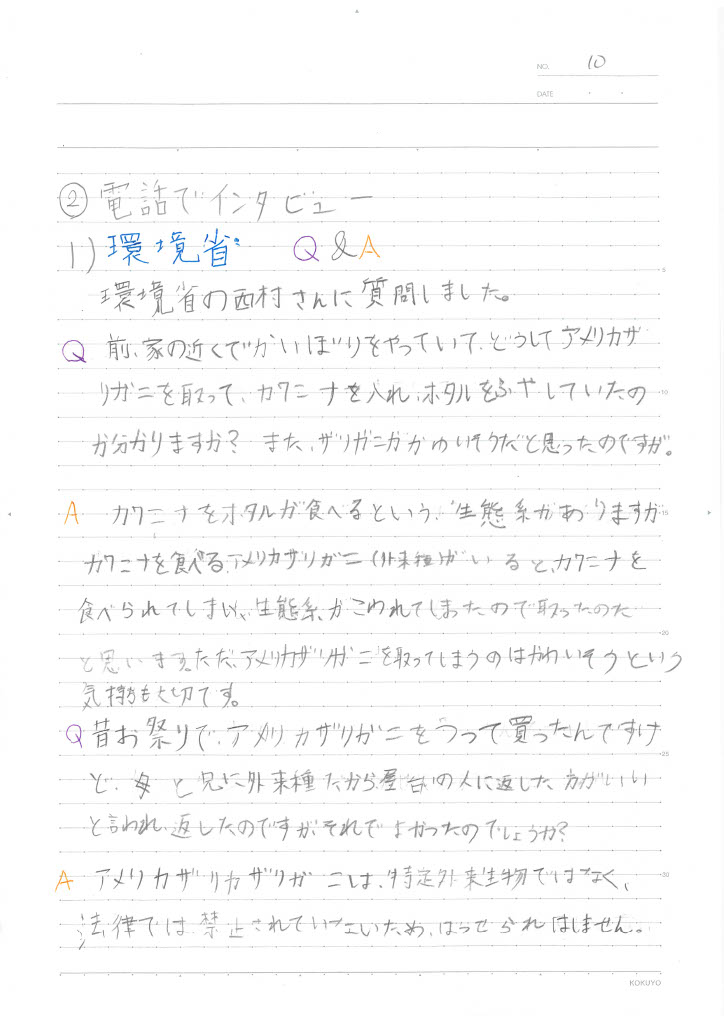 NO. 10
DATE
② 電話でインタビュー
1) 環境省 Q&A
環境省の西村さんに質問しました。
Q 前、家の近くでかいぼりをやっていて、どうしてアメリカザ
リガニを取って、カワニナを入れ、ホタルをふやしていたの
か分かりますか? また、ザリガニがかわいそうだと思ったのですが。
A カワニナをホタルが食べるという、生態系がありますが
カワニナを食べる、アメリカザリガニ(外来種)がいると、カワニナを
食べられてしまい、生態系がこわれてしまったので取ったのだ
と思います。ただ、アメリカザリガニを取ってしまうのはかわいそうという
気持ちも大切です。
Q 昔お祭りで、アメリカザリガニをうって買ったんですけ
ど、母と兄に外来種だから屋台の人に返した方がいい
と言われ、返したのですが、それでよかったのでしょうか?
A アメリカザリカザリガニは、特定外来生物ではなく、
法律では禁止されていないため、はっせられはしません。
KOKUYO
5
10
15
20
25
30